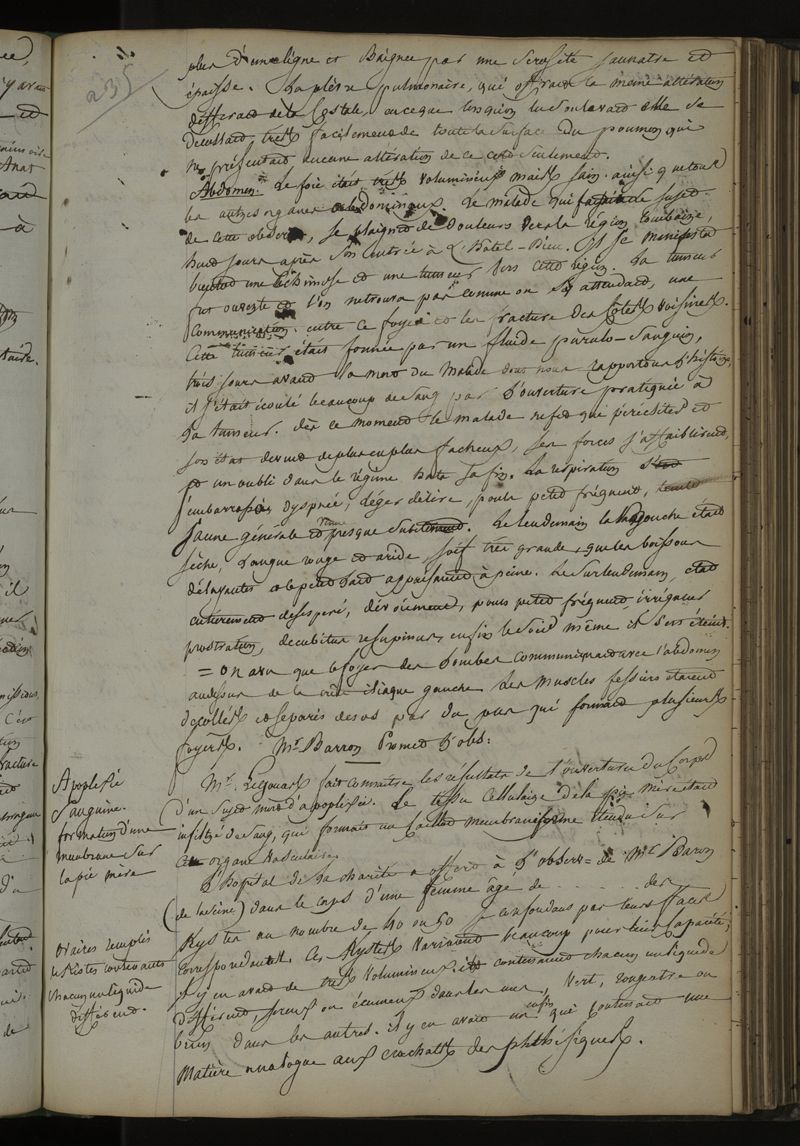 235
plus d'une ligne et Baignée par une serosité jaunatre et
épaisse. La plévre pulmonaire, qui offrait la meme alteration
differait de la Costale, en ce que lorsqu'on la soulevait elle se
decollait trés facilement de toute la surface du poumon qui
ne présentait aucune altération de ce coté seulement.
Abdomen. Le foie était trés volumineux mais sain ainsi que tous
les autres organes abdominaux. Le malade qui fait le sujet
de cette observ. se plaignit de douleurs vers la région lombaire,
huit jours après son entrée à l'hotel-Dieu. Il se manifesta
bientot une Echimose et une tumeur vers cette région. La tumeur
fut ouverte et l'on ne trouva pas comme on s'y attendait, une
Communication entre ce foyer et les fracture des Cotes voisines.
Cette tumeur était formée par un fluide purulo-sanguin,
trois jours avant la mort du Malade dont nous rapportons l'histoire,
il s'était écoulé beaucoup de sang par l'ouverture pratiquée à
la tumeur. dès ce moment le malade ne fit que péricliter et
son état devint de plus en plus facheux, ses forces s'affaiblirent,
et un oubli dans le régime hata sa fin. La respiration
embarrassée, dyspnée, léger délire, pouls petit fréquent, teinte
jaune générale venue presque subitement. Le lendemain la bouche était
sèche, langue rouge et aride, soif très grande, que les boissons
délayantes et le petit lait appaisaient à peine. Le surlendemain, etat
entierement désespéré, dévoiement, pouls petit fréquent, irrégulier
prostration, decubitus resupinus, enfin le soir même il s'est éteint.
= on a vu que le foyer des Lombes communiquait avec l'abdomen
audessus de la crête iliaque gauche les Muscles fessiers étaient
decollés et separés des os par du pus qui formait plusieurs
foyers. Mr. Barron Promet l'obs:
Apoplexie
Sanguine.
formation d'une
membrane sur
la pie mère
Mr. fait connaitre les résultats de l'ouverture du Corps
d'un sujet mort d'apoplexie. Le tissu cellulaire de la pie mère étant
infiltré de sang, qui formait un caillot membraniforme étendu sur
cet organe vasculaire.
ovaires remplis
de Kistes contenants
chacun un liquide
différent.
L'hopital de la charité a offert à l'observ= de Mr. Baron
(de la seine) dans le corps d'une femme âgé de . . . . . . des
Kystes au nombre de 40 ou 50 se confondans par leurs faces
correspondantes. Ces Kystes variaient beaucoup pour leur capacité;
il y en avait de trés volumineux contenaient chacun un liquide
différent, séreux ou écumeux dans les uns, vert, rougeatre ou
brun dans les autres. il y en avait enfin un qui contenait une
Matière analogue aux crachats des phthisiques.